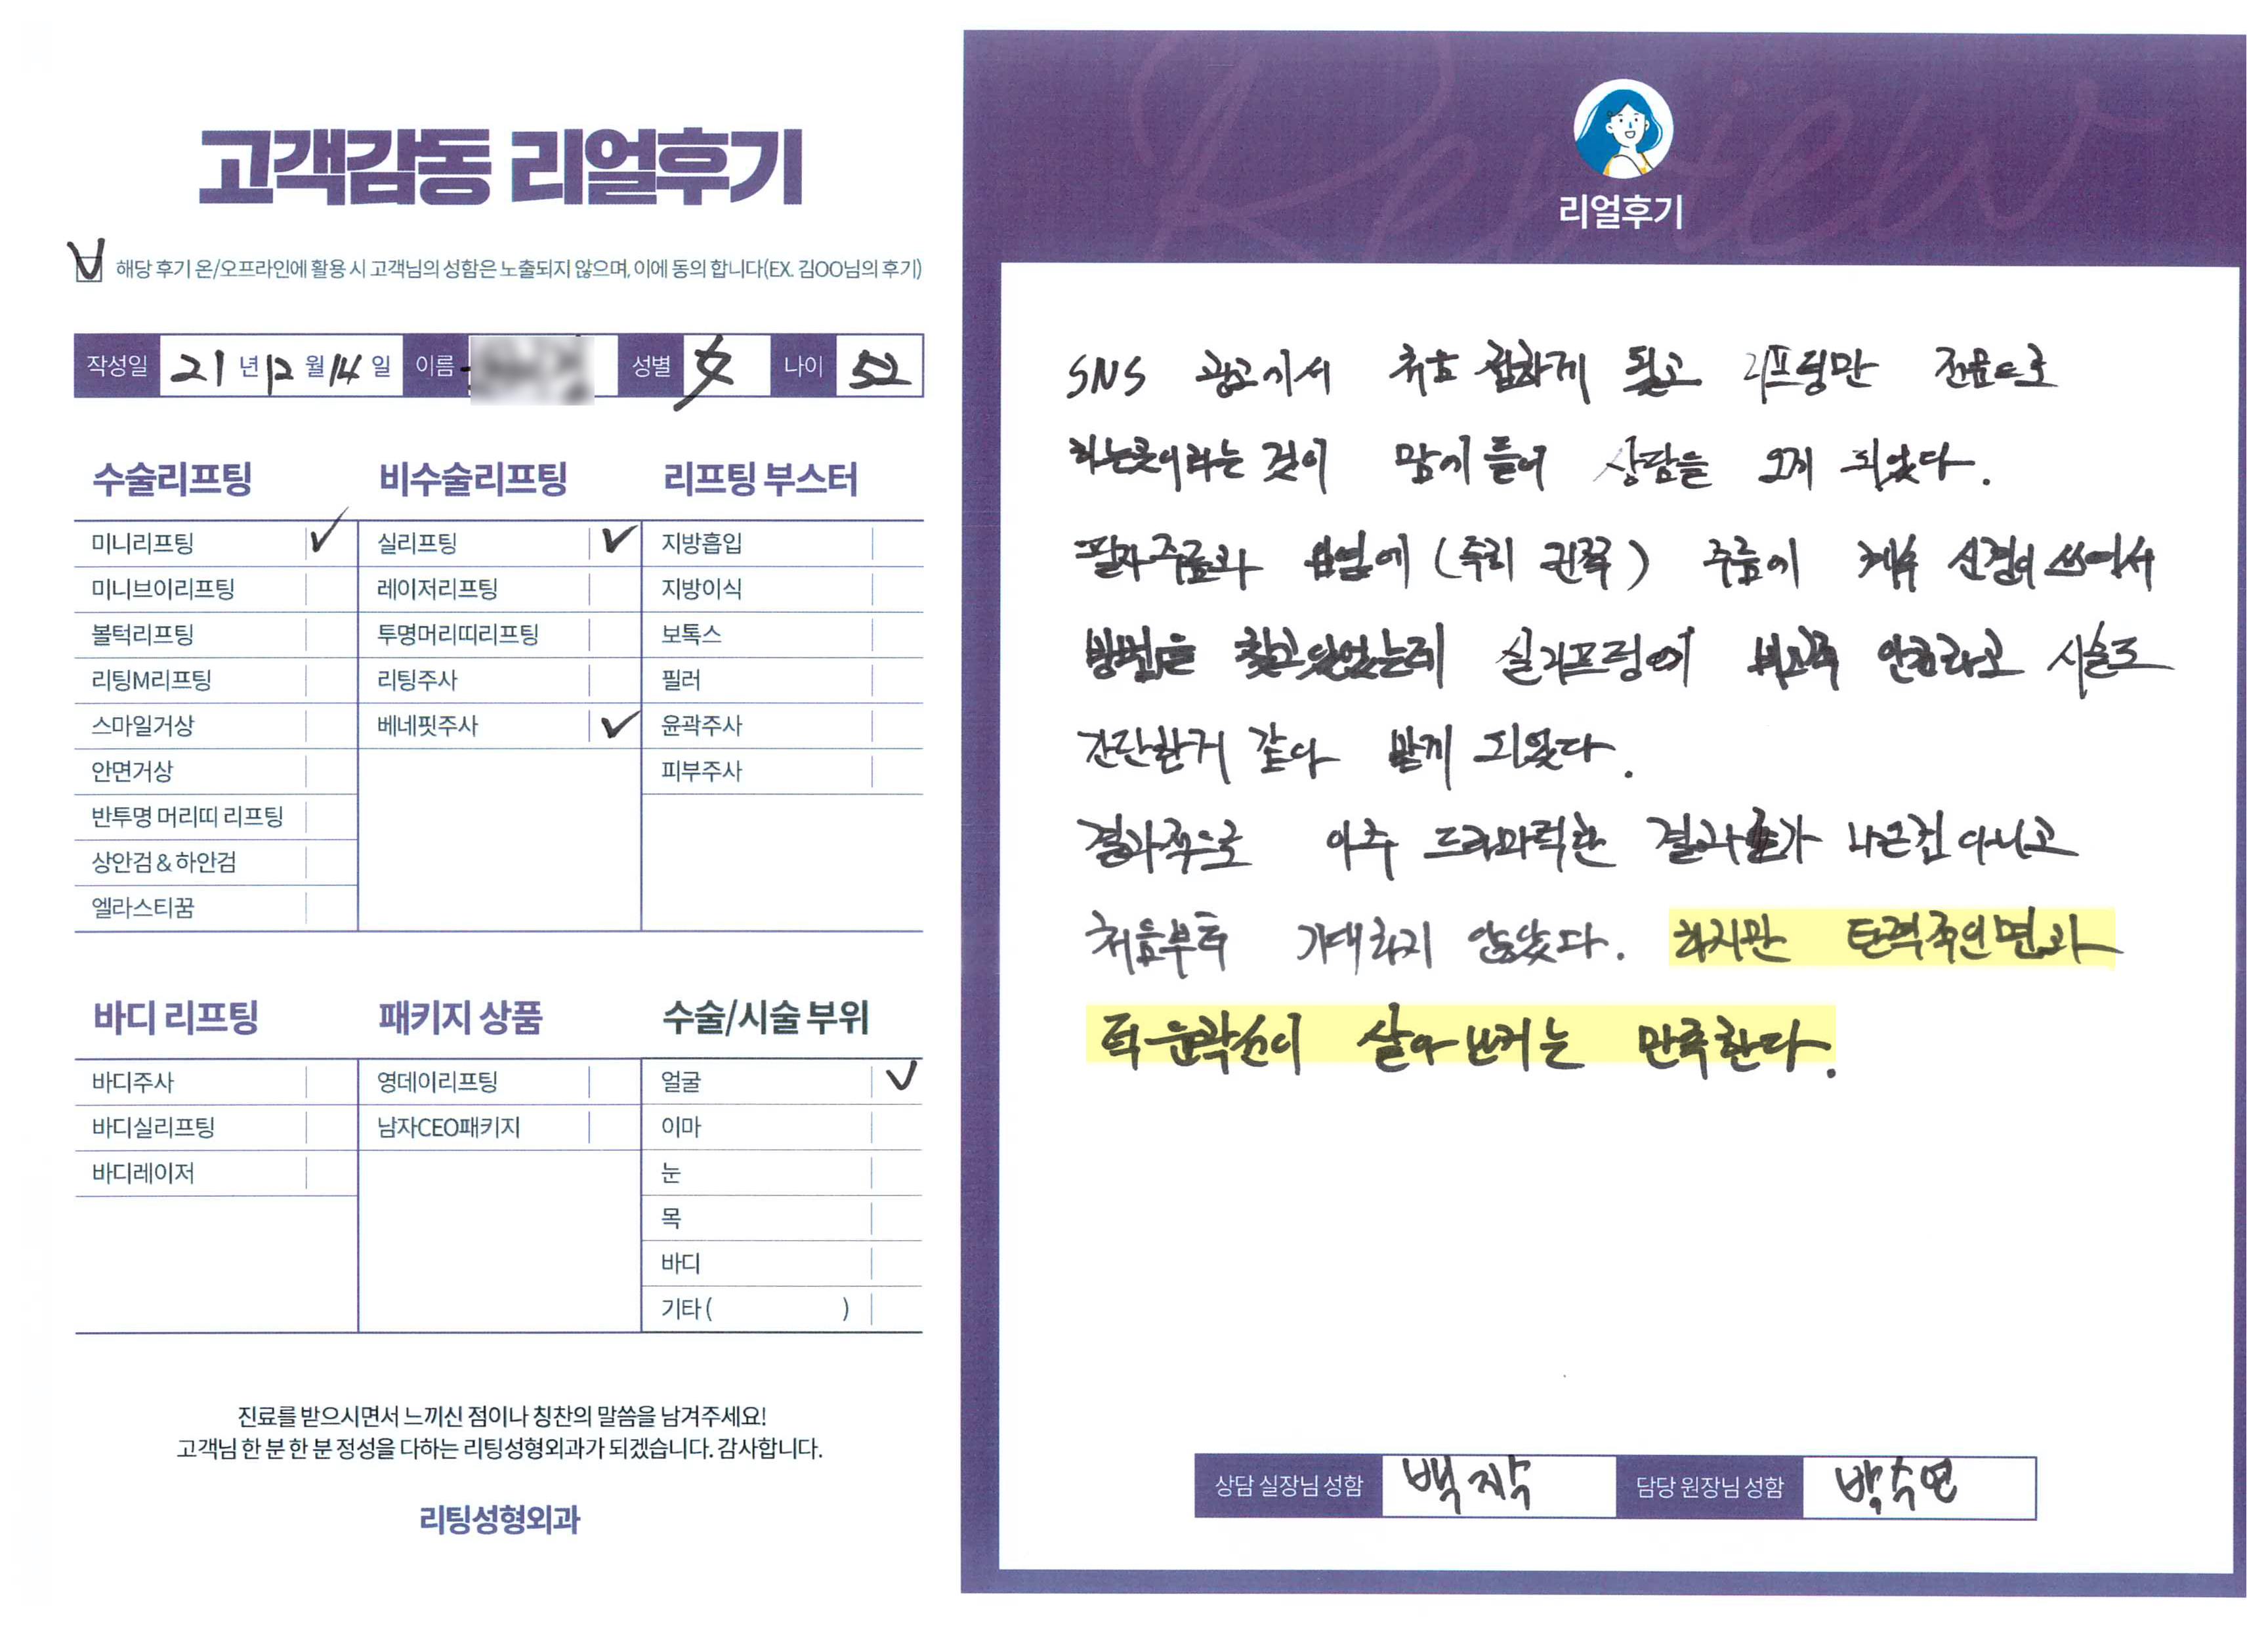 고객감동 리얼후기
해당 후기 온/오프라인에 활용 시 고객님의 성함은 노출되지 않으며, 이에 동의 합니다(EX. 김OO님의 후기)
작성일 21 년 12 월 14 일 이름 성별 女 나이 52
수술리프팅
미니리프팅
미니브이리프팅
볼턱리프팅
리팅M리프팅
스마일거상
안면거상
반투명 머리띠 리프팅
상안검 & 하안검
엘라스티꿈
비수술리프팅
실리프팅
레이저리프팅
투명머리띠리프팅
리팅주사
베네핏주사
리프팅 부스터
지방흡입
지방이식
보톡스
필러
윤곽주사
피부주사
바디 리프팅
바디주사
바디실리프팅
바디레이저
패키지 상품
영데이리프팅
남자CEO패키지
수술/시술 부위
얼굴
이마
눈
목
바디
기타 ( )
진료를 받으시면서 느끼신 점이나 칭찬의 말씀을 남겨주세요!
고객님 한 분 한 분 정성을 다하는 리팅성형외과가 되겠습니다. 감사합니다.
리팅성형외과
Review
리얼후기
SNS 광고에서 처음 접하게 됐고 리프팅만 전문으로
하는곳이라는 것이 맘에 들어 상담을 오게 되었다.
팔자주름과 입옆에 주름이 계속 신경이 쓰여서
방법을 찾고있었는데 실리프팅이 비교적 안전하고 시술도
간단한거 같아 받게 되었다.
결과적으로 아주 드라마틱한 결과가 나는건 아니고
처음부터 기대하지 않았다. 하지만 탄력적인면과
턱윤곽선이 살아난거는 만족한다.
상담 실장님 성함 백 담당 원장님 성함 박수연